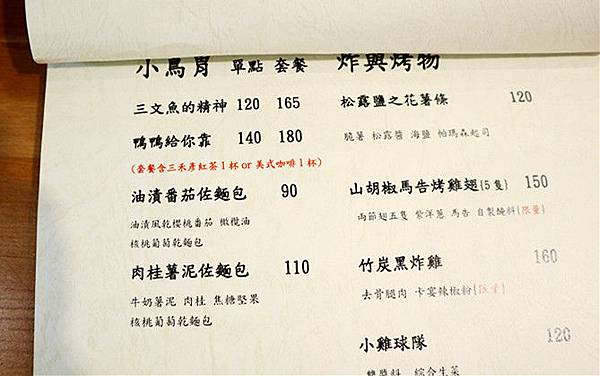 小鳥胃 單點 套餐
三文魚的精神 120 165
鴨鴨給你靠 140 180
(套餐含三禾彥紅茶1杯 or 美式咖啡1杯)
油漬番茄佐麵包 90
油漬風乾櫻桃番茄 橄欖油
核桃葡萄乾麵包
肉桂薯泥佐麵包 110
牛奶薯泥 肉桂 焦糖堅果
核桃葡萄乾麵包
炸與烤物
松露鹽之花薯條 120
脆薯 松露醬 海鹽 帕瑪森起司
山胡椒馬告烤雞翅(5隻) 150
兩節翅五隻 紫洋蔥 馬告 自製醃料(限量)
竹炭黑炸雞 160
去骨腿肉 卡宴辣椒粉(限量)
小雞球隊 120
雙醬料 綜合生菜